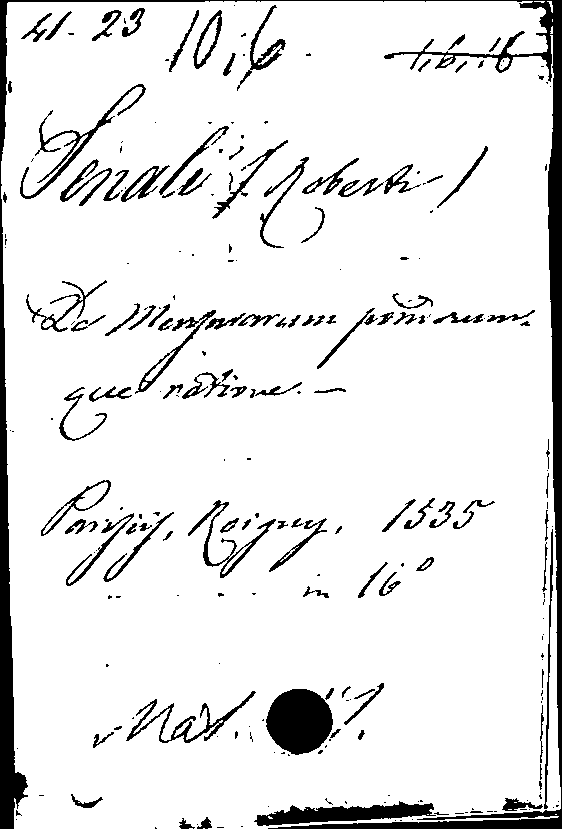 41-23 10,6 1,6,16
Senali (Roberti)
De Mensurarum ponderum-
que ratione. —
Parisiis, Roigny, 1535
in 16°
Mat.